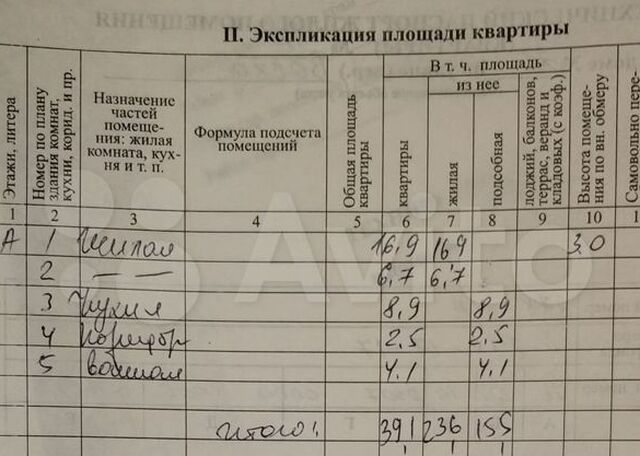 II. Экспликация площади квартиры
Этажи, литера
Номер по плану
здания комнат,
кухни, корид. и пр.
Назначение
частей
помеще-
ния: жилая
комната, кух-
ня и т. п.
Формула подсчета
помещений
Общая площадь
квартиры
В т. ч. площадь
из нее
квартиры
жилая
подсобная
лоджий, балконов,
террас, веранд и
кладовых (с коэф.)
Высота помеще-
ния по вн. обмеру
Самовольно пере-
1 2 3 4 5 6 7 8 9 10 1
А 1 Жилая 16,9 16,9 3.0
2 — — 6,7 6,7
3 Кухня 8,9 8,9
4 Коридор 2,5 2,5
5 Ванная 4,1 4,1
Итого: 39,1 23,6 15,5
Avito